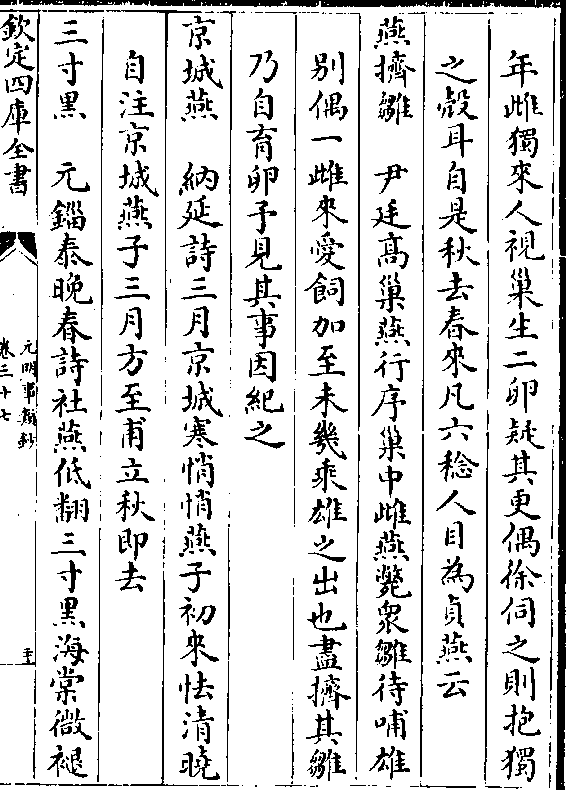 年雌獨來人視巢生二卵疑其更偶徐伺之則抱獨
之殼耳自是秋去春來凡六稔人目為貞燕云
燕擠雛　尹廷高巢燕行序巢中雌燕斃衆雛待哺雄
别偶一雌來愛飼加至未幾乘雄之出也盡擠其雛
乃自育卵予見其事因紀之
京城燕　納延詩三月京城寒悄悄燕子初來怯清曉
自注京城燕子三月方至甫立秋即去
三寸黑　元錙泰晚春詩社燕低翻三寸黑海棠微褪
欽定四庫全書
元明事類鈔
卷三十七